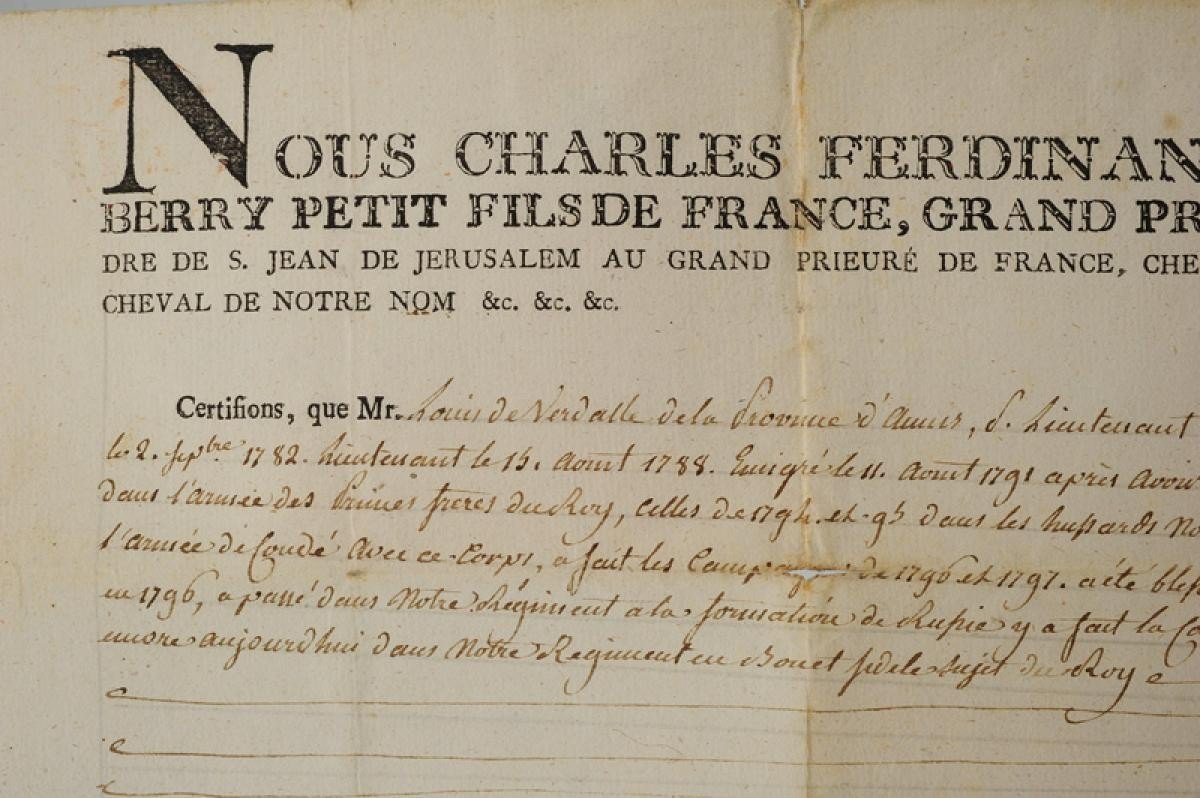 NOUS CHARLES FERDINAN
BERRY PETIT FILS DE FRANCE, GRAND PR
DRE DE S. JEAN DE JERUSALEM AU GRAND PRIEURÉ DE FRANCE, CHE
CHEVAL DE NOTRE NOM &c. &c. &c.
Certifions, que Mr. Louis de Verdalle de la Province d'Aunis, S. Lieutenant
le 2. Sepbre 1782. Lieutenant le 15. Aoust 1788. Emigré le 11. Aoust 1791 après Avoir
dans l'armée des Princes freres du Roy, celles de 1794. et 95 dans les hussards No
l'armée de Condé Avec ce Corps, a fait les Campagnes de 1796 et 1797. a été bles
en 1796, a passé dans Notre Régiment a la formation de Russie y a fait la Ca
encore aujourd'hui dans Notre Regiment en Bon et fidele sujet du Roy